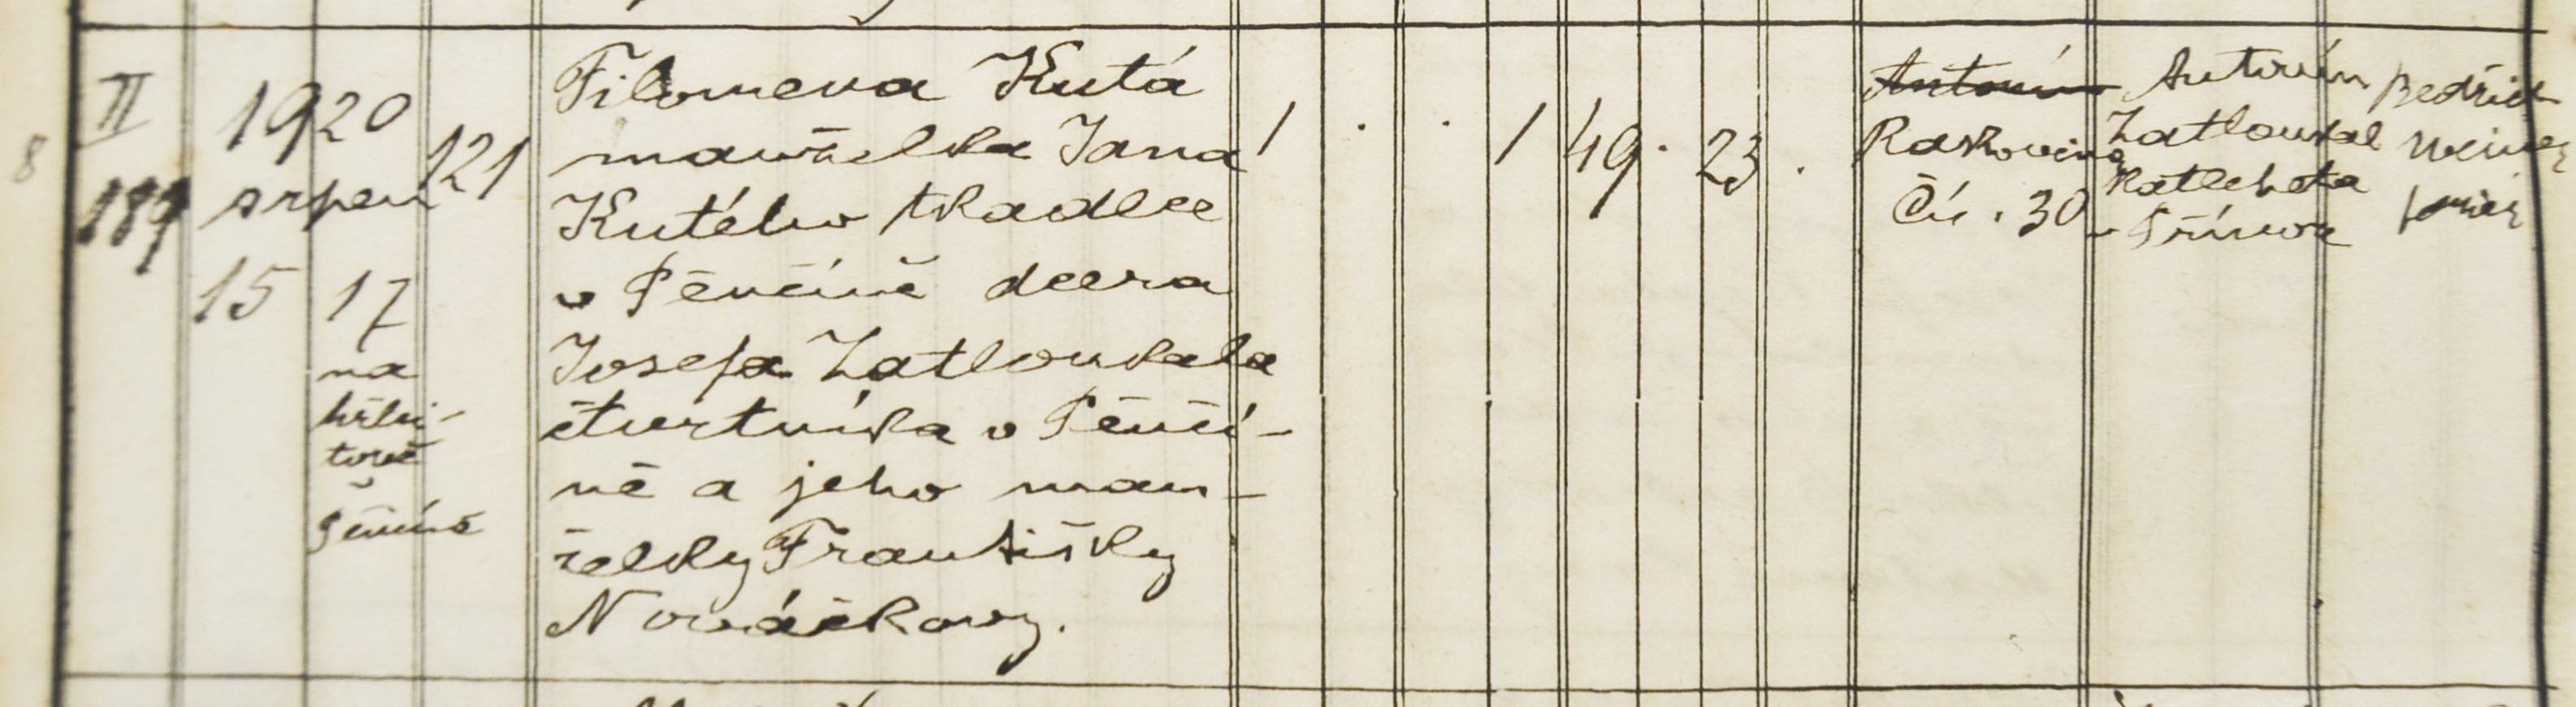 II
189
1920
srpen
15 17
na
hřbi-
tově
v
Pěnčíně
121
Filomena Kutá
manželka Jana
Kutého tkadlce
v Pěnčíně dcera
Josefa Zatloukala
čtvrtníka v Pěnčí-
ně a jeho man-
želky Františky
Nováčkovy.
1 . . 1 49. 23 .
Antonín
Rakovina
Čís. 30
Antonín
Zatloukal
v
Bedřich
8